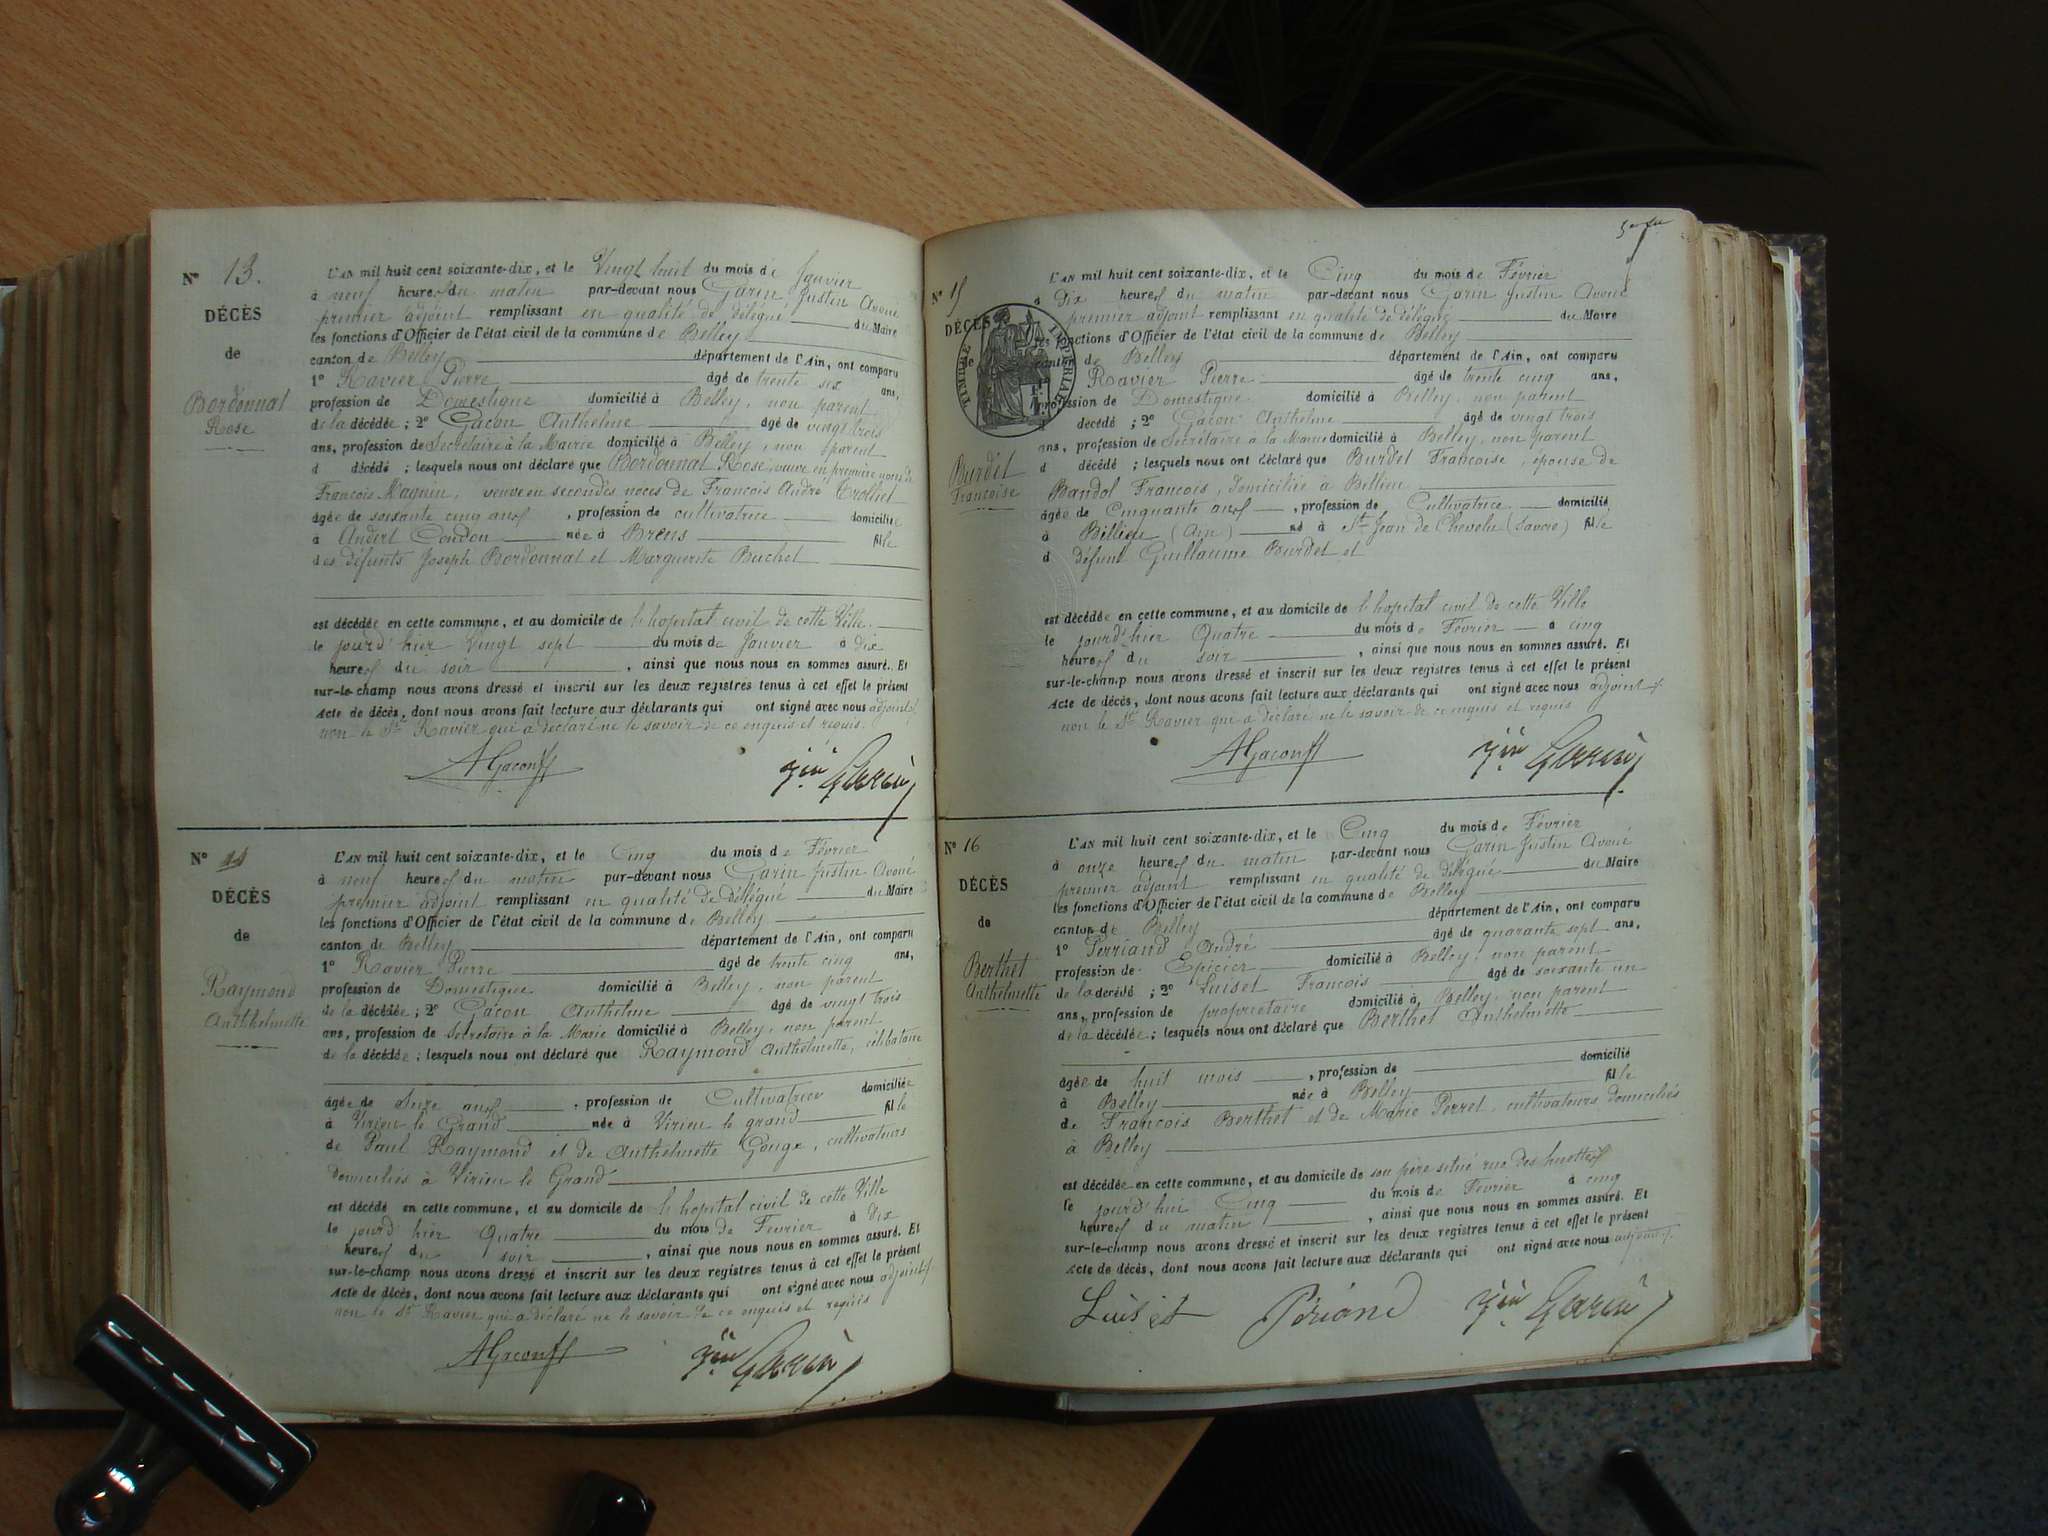 N° 13.
DÉCÈS
de
Bordonnat
Rose
L'AN mil huit cent soixante-dix, et le Vingt huit du mois de Janvier
à neuf heures du matin par-devant nous Garin, Justin Avoué
premier adjoint remplissant en qualité de délégué du Maire
les fonctions d'Officier de l'état civil de la commune de Belley
canton de Belley département de l'Ain, ont comparu
1° Ravier Pierre âgé de trente six ans,
profession de Domestique domicilié à Belley, non parent
de la décédée ; 2° Gacon Anthelme âgé de vingt trois
ans, profession de Secrétaire à la Mairie domicilié à Belley, non parent
d décédé ; lesquels nous ont déclaré que Bordonnat Rose, veuve en première noces de
François Magnin, veuve en secondes noces de François André Trolliet
âgée de soixante cinq ans, profession de cultivatrice domiciliée
à Andert Condon née à Brens fille
des défunts Joseph Bordonnat et Marguerite Buchet
est décédée en cette commune, et au domicile de l'hopital civil de cette Ville
le jourd'hier Vingt sept du mois de Janvier à dix
heures du soir, ainsi que nous nous en sommes assuré. Et
sur-le-champ nous avons dressé et inscrit sur les deux registres tenus à cet effet le présent
Acte de décès, dont nous avons fait lecture aux déclarants qui ont signé avec nous adjoint
non le Sr Ravier qui a déclaré ne le savoir de ce enquis et requis.
AGacon
Jin Garin
N° 14
DÉCÈS
de
Raymond
Anthelmette
L'AN mil huit cent soixante-dix, et le Cinq du mois de Février
à neuf heures du matin par-devant nous Garin Justin Avoué
premier adjoint remplissant en qualité de délégué du Maire
les fonctions d'Officier de l'état civil de la commune de Belley
canton de Belley département de l'Ain, ont comparu
1° Ravier Pierre âgé de trente cinq ans,
profession de Domestique domicilié à Belley, non parent
de la décédée ; 2° Gacon Anthelme âgé de vingt trois
ans, profession de Secretaire à la Marie domicilié à Belley, non parent
de la décédée ; lesquels nous ont déclaré que Raymond Anthelmette, célibataire
âgée de Seize ans, profession de Cultivatrice domiciliée
à Virieu le Grand née à Virieu le grand fille
de Paul Raymond et de Anthelmette Gouge, cultivateurs
domiciliés à Virieu le Grand
est décédé en cette commune, et au domicile de l'hopital civil de cette Ville
le jourd'hier Quatre du mois de Fevrier à dix
heures du soir, ainsi que nous nous en sommes assuré. Et
sur-le-champ nous avons dressé et inscrit sur les deux registres tenus à cet effet le présent
Acte de décès, dont nous avons fait lecture aux déclarants qui ont signé avec nous adjoint
non le Sr Ravier qui a déclaré ne le savoir de ce enquis et requis
AGacon
Jin Garin
N° 15
DÉCÈS
de
TIMBRE IMPERIAL
Burdet
Françoise
L'AN mil huit cent soixante-dix, et le Cinq du mois de Février
à Dix heures du matin par-devant nous Garin Justin Avoué
premier adjoint remplissant en qualité de délégué du Maire
les fonctions d'Officier de l'état civil de la commune de Belley
canton de Belley département de l'Ain, ont comparu
Ravier Pierre âgé de trente cinq ans,
profession de Domestique domicilié à Belley, non parent
décédé ; 2° Gacon Anthelme âgé de vingt trois
ans, profession de Secrétaire à la Mairie domicilié à Belley, non parent
d décédé ; lesquels nous ont déclaré que Burdet Françoise, épouse de
Bandol François, domiciliée à Billieu
âgée de Cinquante ans, profession de Cultivatrice domicilié
à Billieu (Ain) né à St Jean de Chevelu (Savoie) fille
d défunt Guillaume Burdet et
est décédée en cette commune, et au domicile de l'hopital civil de cette Ville
le jourd'hier Quatre du mois de Février à cinq
heures du soir, ainsi que nous nous en sommes assuré. Et
sur-le-champ nous avons dressé et inscrit sur les deux registres tenus à cet effet le présent
Acte de décès, dont nous avons fait lecture aux déclarants qui ont signé avec nous adjoint
non le Sr Ravier qui a déclaré ne le savoir de ce enquis et requis
AGacon
Jin Garin
N° 16
DÉCÈS
de
Berthet
Anthelmette
L'AN mil huit cent soixante-dix, et le Cinq du mois de Février
à onze heures du matin par-devant nous Garin Justin Avoué
premier adjoint remplissant en qualité de délégué du Maire
les fonctions d'Officier de l'état civil de la commune de Belley
canton de Belley département de l'Ain, ont comparu
1° Perriand André âgé de quarante sept ans,
profession de Epicier domicilié à Belley, non parent
de la décédé ; 2° Luiset François âgé de soixante un
ans, profession de propriétaire domicilié à Belley, non parent
de la décédée ; lesquels nous ont déclaré que Berthet Anthelmette
âgée de huit mois, profession de domicilié
à Belley née à Belley fille
de François Berthet et de Marie Perret, cultivateurs domiciliés
à Belley
est décédée en cette commune, et au domicile de son père situé rue des huettes
le jourd'hui Cinq du mois de Février à cinq
heures du matin, ainsi que nous nous en sommes assuré. Et
sur-le-champ nous avons dressé et inscrit sur les deux registres tenus à cet effet le présent
Acte de décès, dont nous avons fait lecture aux déclarants qui ont signé avec nous adjoint.
Luiset Périand Jin Garin